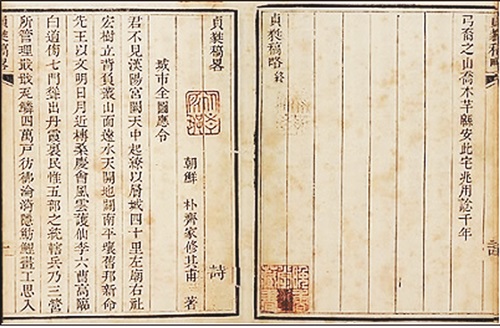 弓裔之山喬木芊緜安此宅兆用諗千年
貞蕤稿略終
貞蕤稿畧 詩
朝鮮 朴齊家修其甫 著
城市全圖應令
君不見漢陽宮闕天中起繚以層城四十里左廟右社
宏樹立背負叢山面遠水天開地闢南平壤舊邦新命
先王以文明日月近棟桷慶會風雲護仙李六曹高臨
白道衢七門聳出丹霞裏民惟五部之統轄兵乃三營
所管理戢戢瓦鱗四萬戶彷彿淪漪隱魴鯉畫工思入